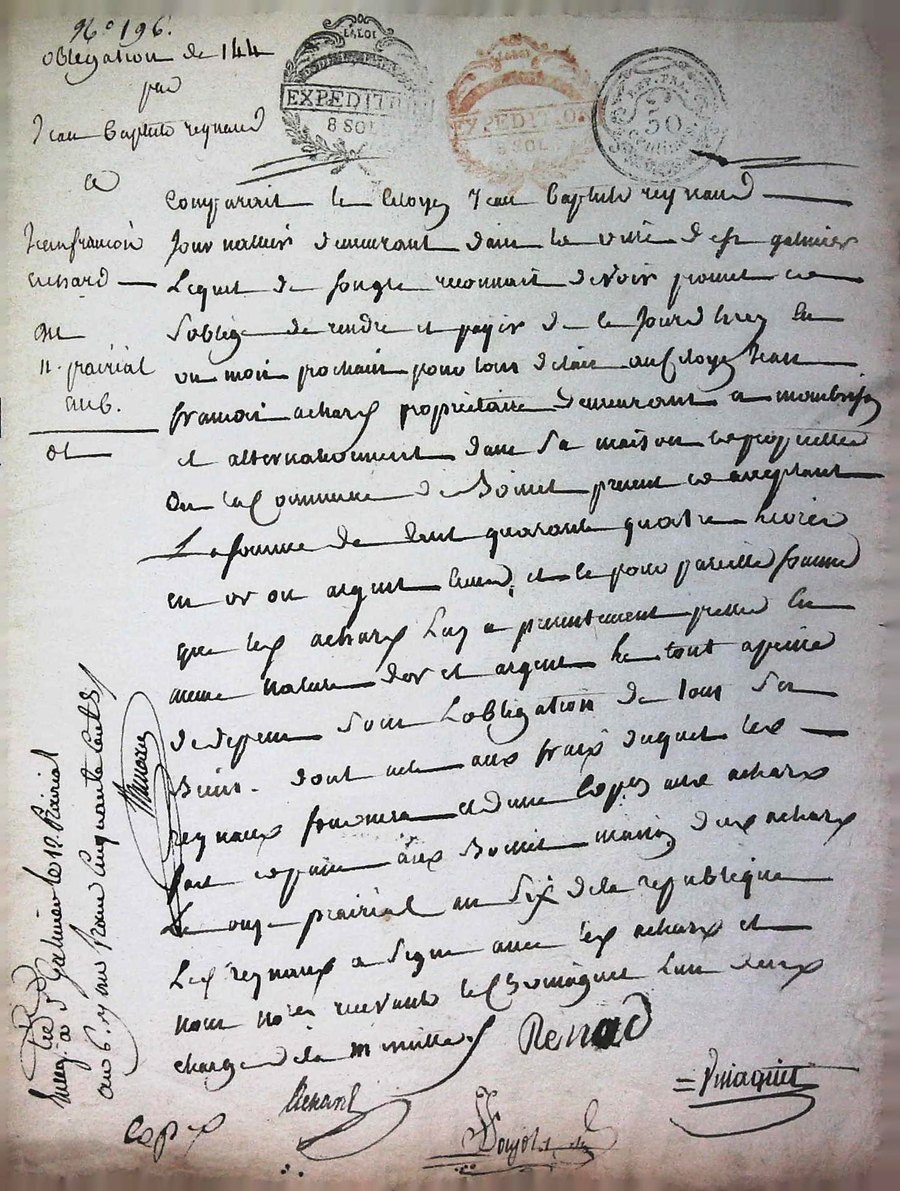 N° 196.
obligation de 144
par
Jean Baptiste reynaud
a
Jean francois
achard
du
11. prairial
an 6.
LA LOI
EXPEDITION
8 SOLS
LA LOI
EXPEDITION
8 SOLS
REP. FRA.
50
Centimes
Comparait le Citoyen Jean Baptiste reynaud
Journallier demeurant dans la ville de st galmier
Lequel de reconnait devoir promet et
Soblige de rendre et payer de ce Jourdhuy En
un mois prochain pour tous delais au Citoyen Jean
francois achard propriétaire demeurant a montbrison
et alternativement dans Sa maison
en la Commune de Boisset present et acceptant
La Somme de Cent quarante quatre livres
en or ou argent et ce pour pareille Somme
que led achard Luy a presentement pretté En
meme nature dor et argent Le tout a peine
de depens Sous Lobligation de tous Ses
Biens. dont acte aux frais duquel led
reynaud fournira une Copie aud achard
fait et passé aud Boisset maison dud achard
Le onze prairial an Six de la republique
Led reynaud a Signé avec led achard et
nous no.res recevants led Lun deux
chargé de la minutte
Renaud
achard
copie
Enreg. a St Galmier le 12 Prairial
an 6. Reçu Cinquante Cents